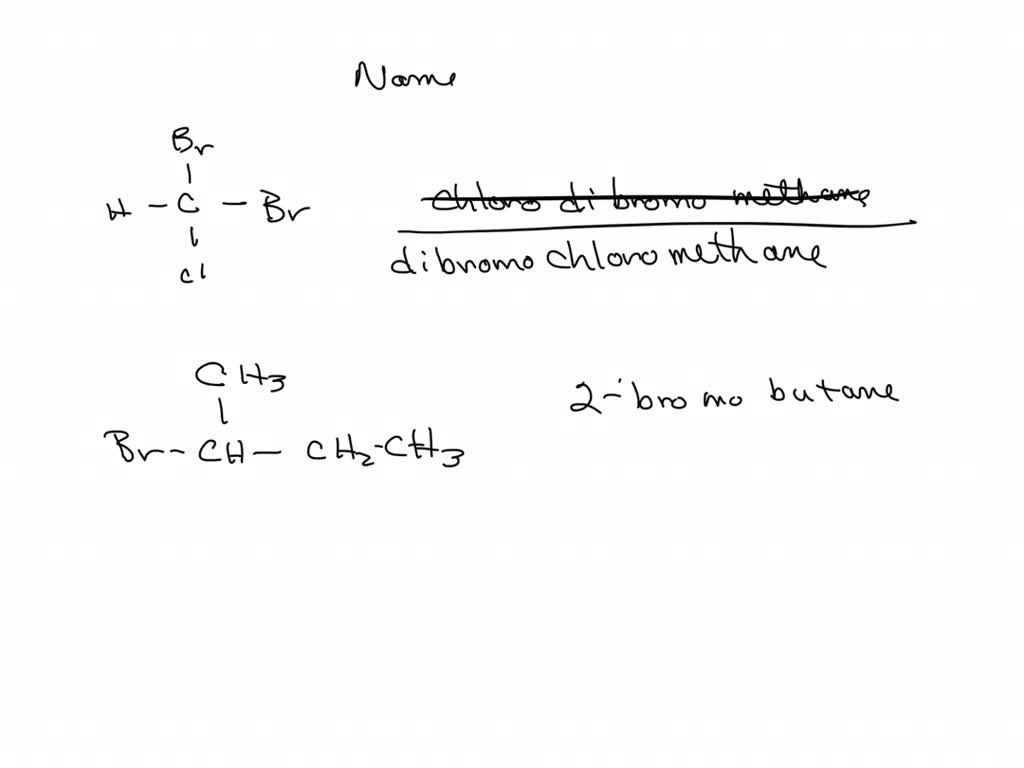 Name
Br
H - C - Br
Cl
chloro dibromo methane
dibromochloromethane
CH3
Br - CH - CH2-CH3
2-bromo butane